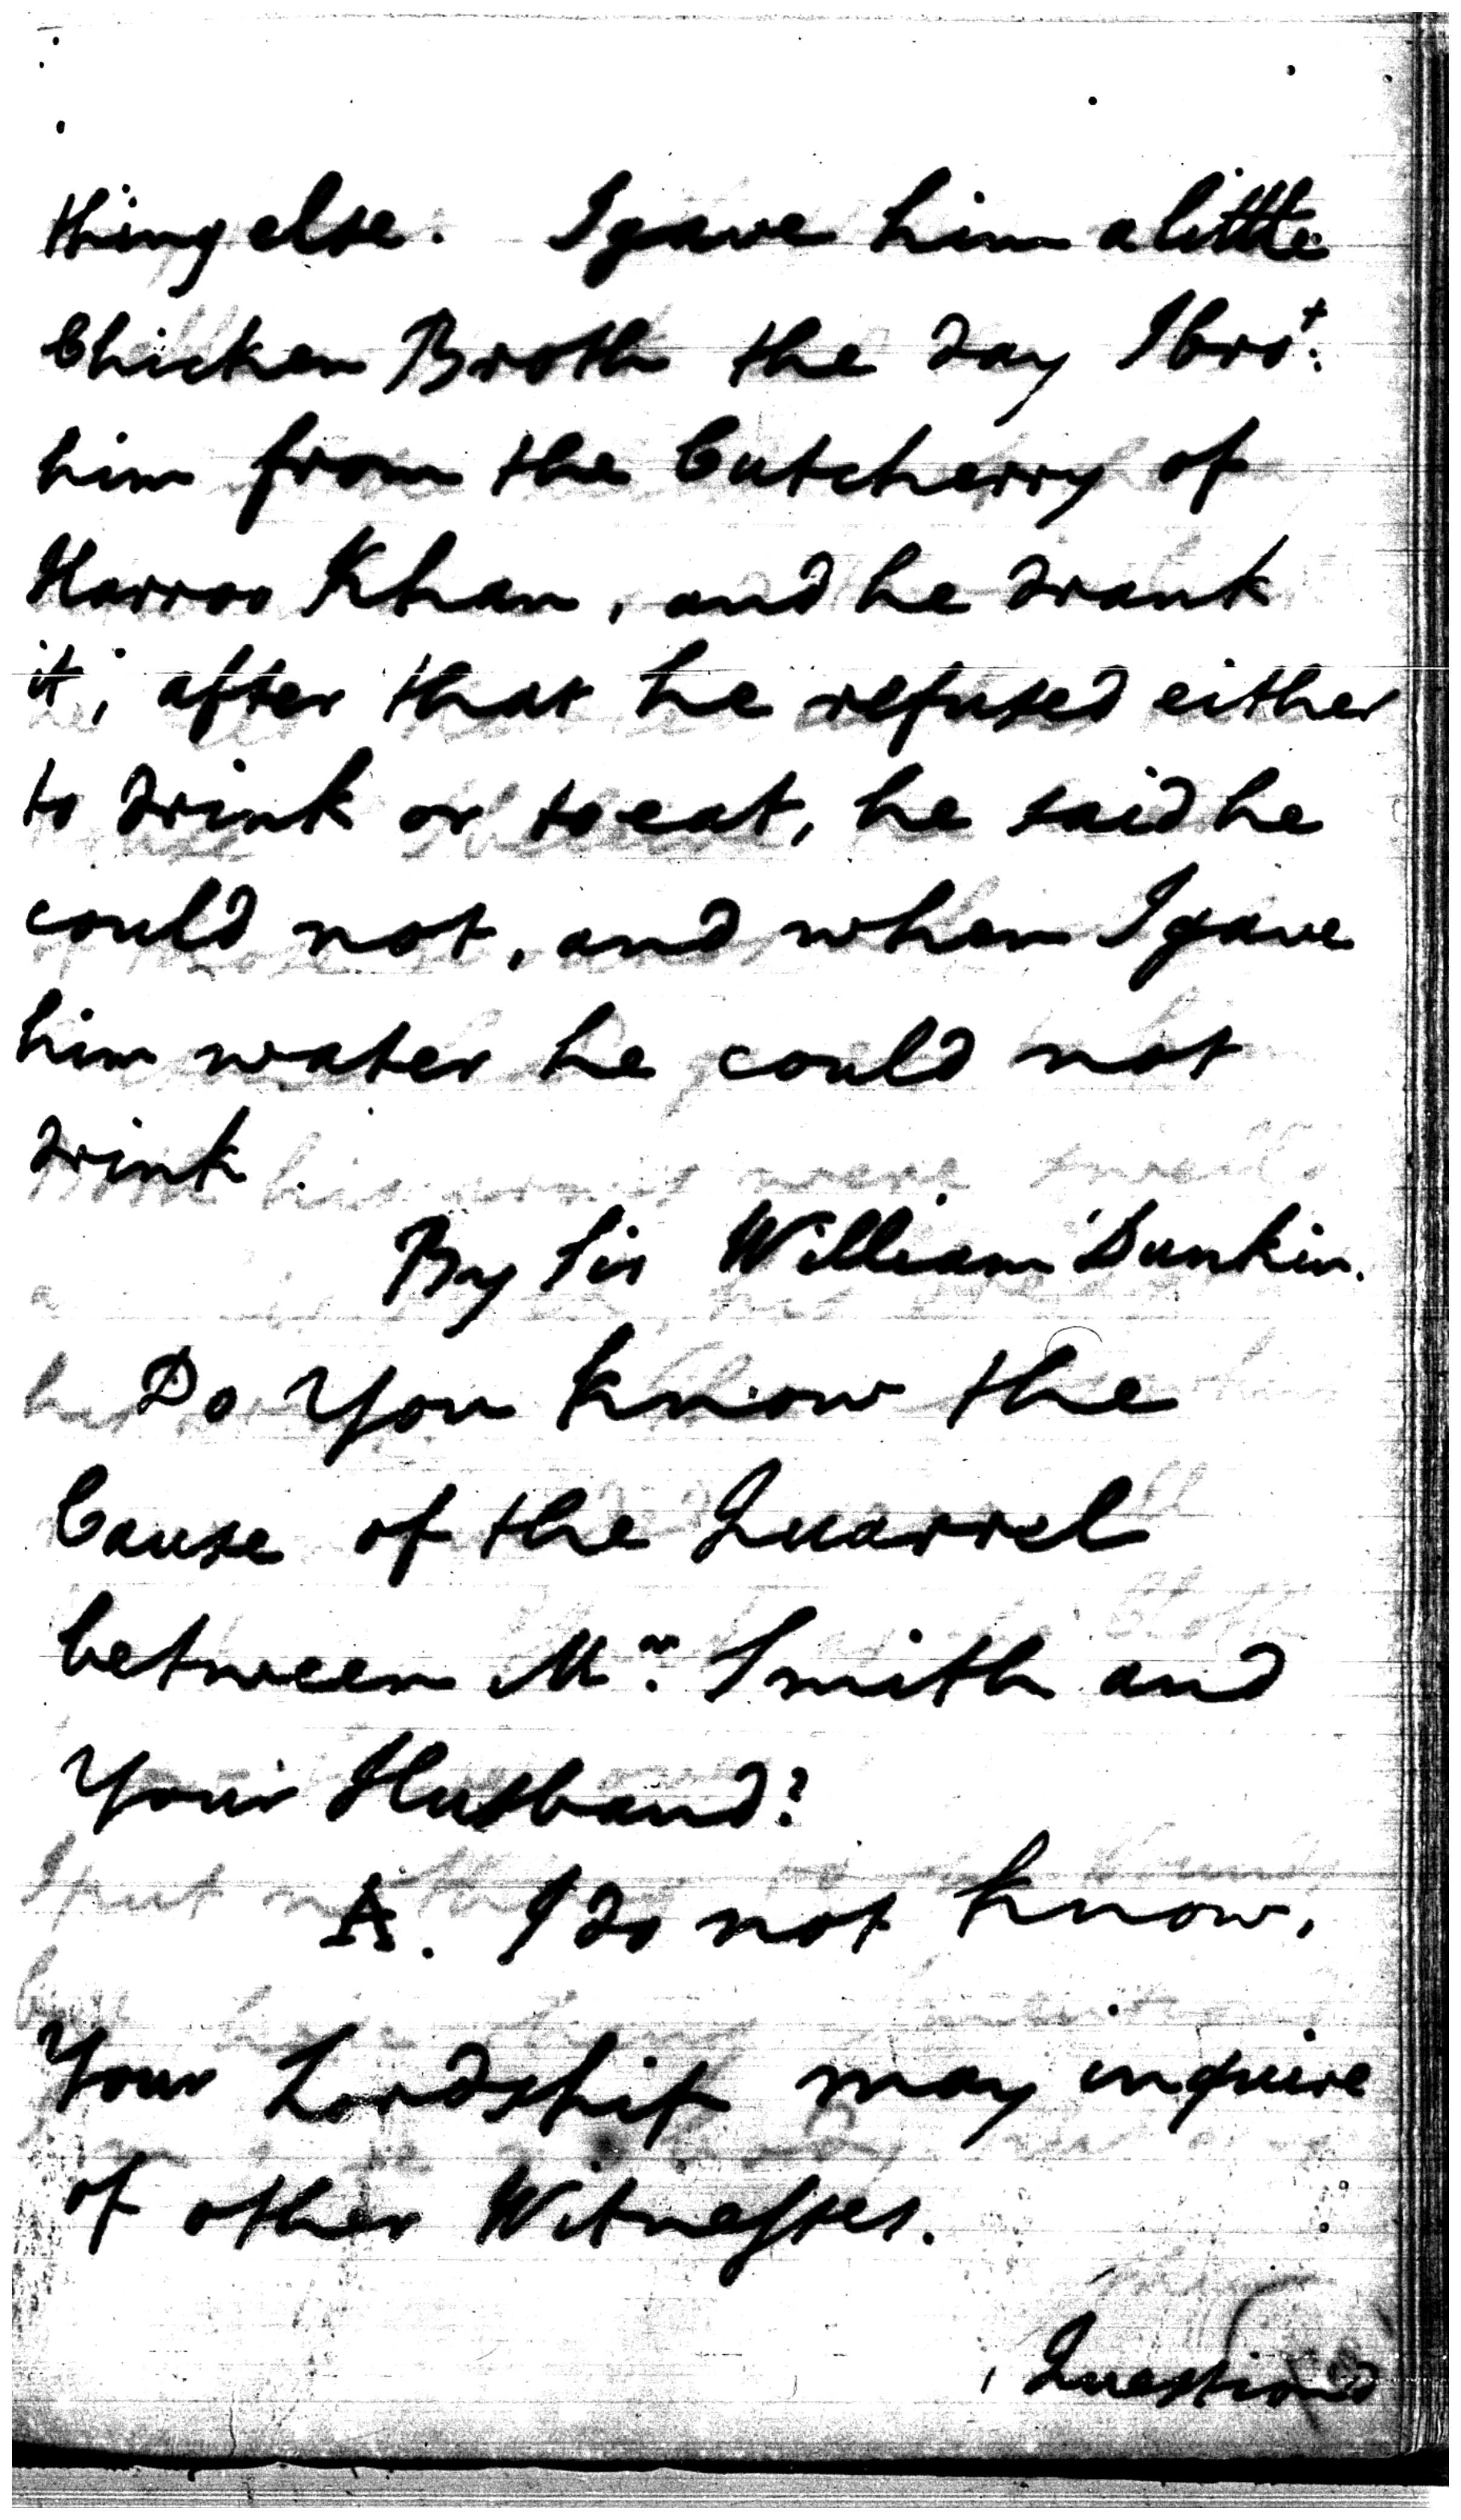 thing else. I gave him a little
Chicken Broth the day I bro.t
him from the Cutcherry of
Harroo Khan, and he drank
it; after that he refused either
to drink or to eat, he said he
could not, and when I gave
him water he could not
drink.
By Sir William Dunkin.
Do You know the
Cause of the Quarrel
between Mr. Smith and
Your Husband?
A. I do not know,
Your Lordship may inquire
of other Witnesses.
Question'd